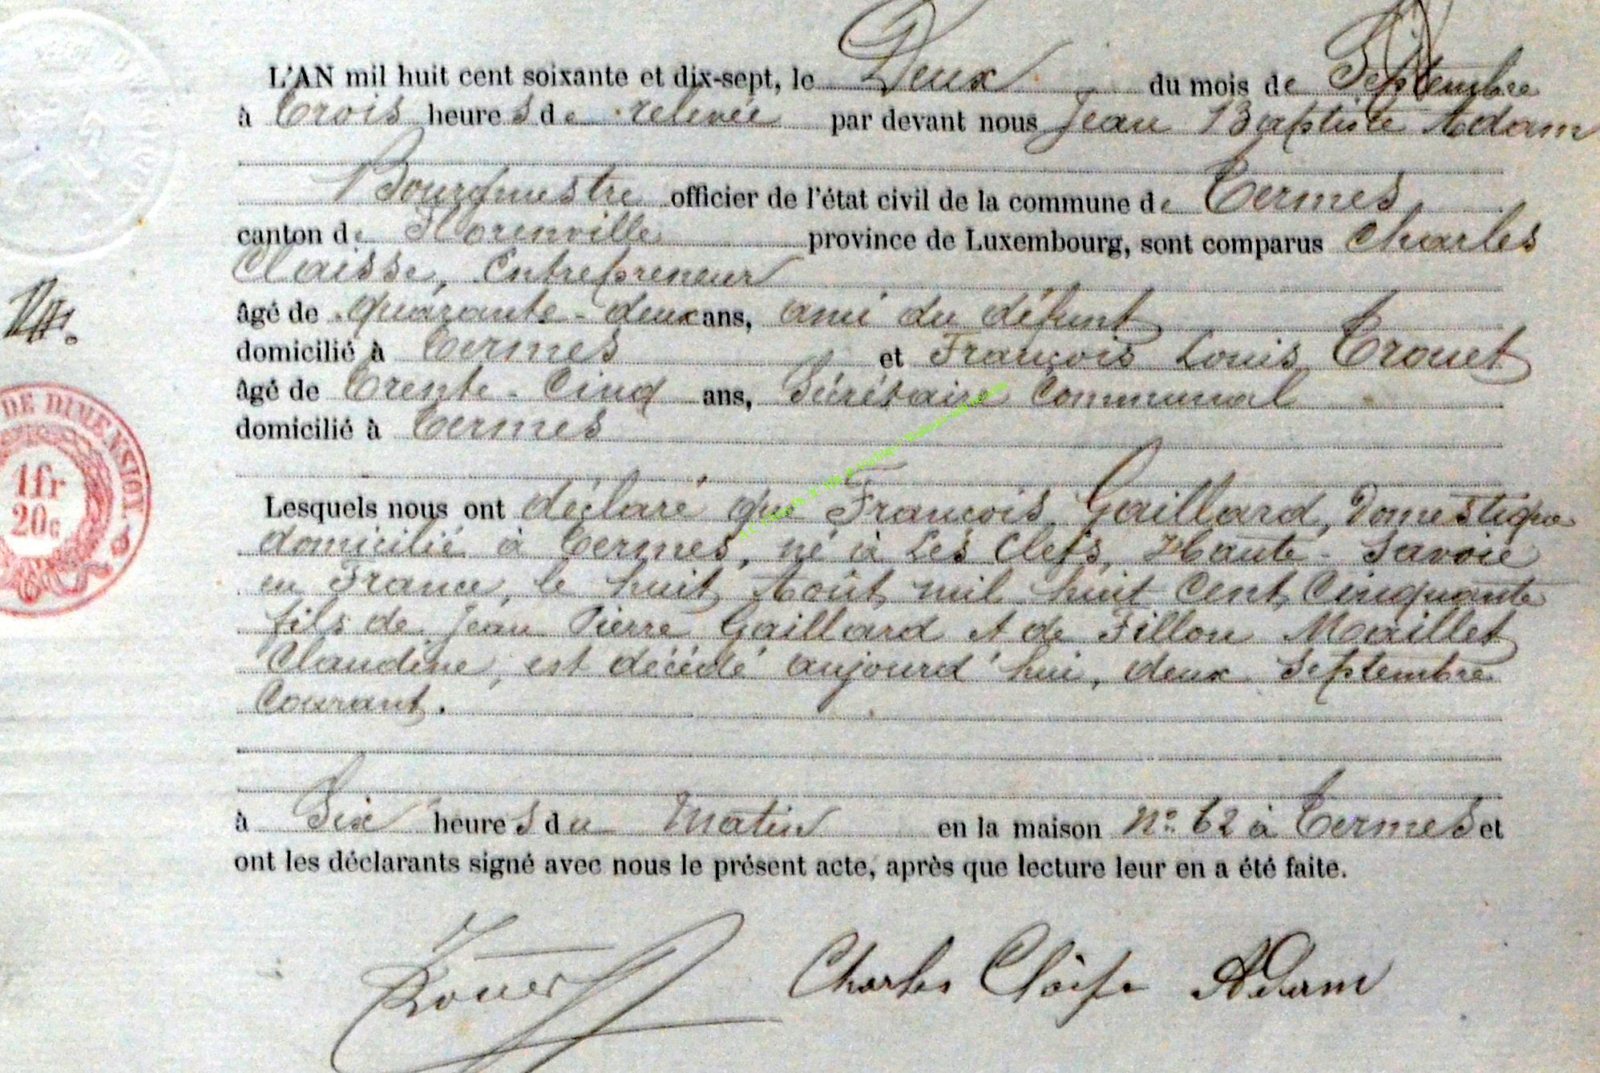 L'AN mil huit cent soixante et dix-sept, le Deux du mois de Septembre
à Trois heures de relevée par devant nous Jean Baptiste Adam
Bourgmestre officier de l'état civil de la commune de Termes
canton de Florenville province de Luxembourg, sont comparus Charles
Claisse, Entrepreneur
âgé de quarante-deux ans, ami du défunt
domicilié à Termes et François Louis Trouet
âgé de Trente-Cinq ans, Sécrétaire Communal
domicilié à Termes
Lesquels nous ont déclaré que François Gaillard, Domestique
domicilié à Termes, né à Les Clefs, Haute-Savoie
en France, le huit Août mil huit Cent Cinquante
fils de Jean Pierre Gaillard et de Fillon Maillet
Claudine, est décédé aujourd'hui, deux Septembre
Courant.
à Six heures du Matin en la maison N° 62 à Termes et
ont les déclarants signé avec nous le présent acte, après que lecture leur en a été faite.
Charles Claisse Adam
DE DIMENSION
1fr
20c